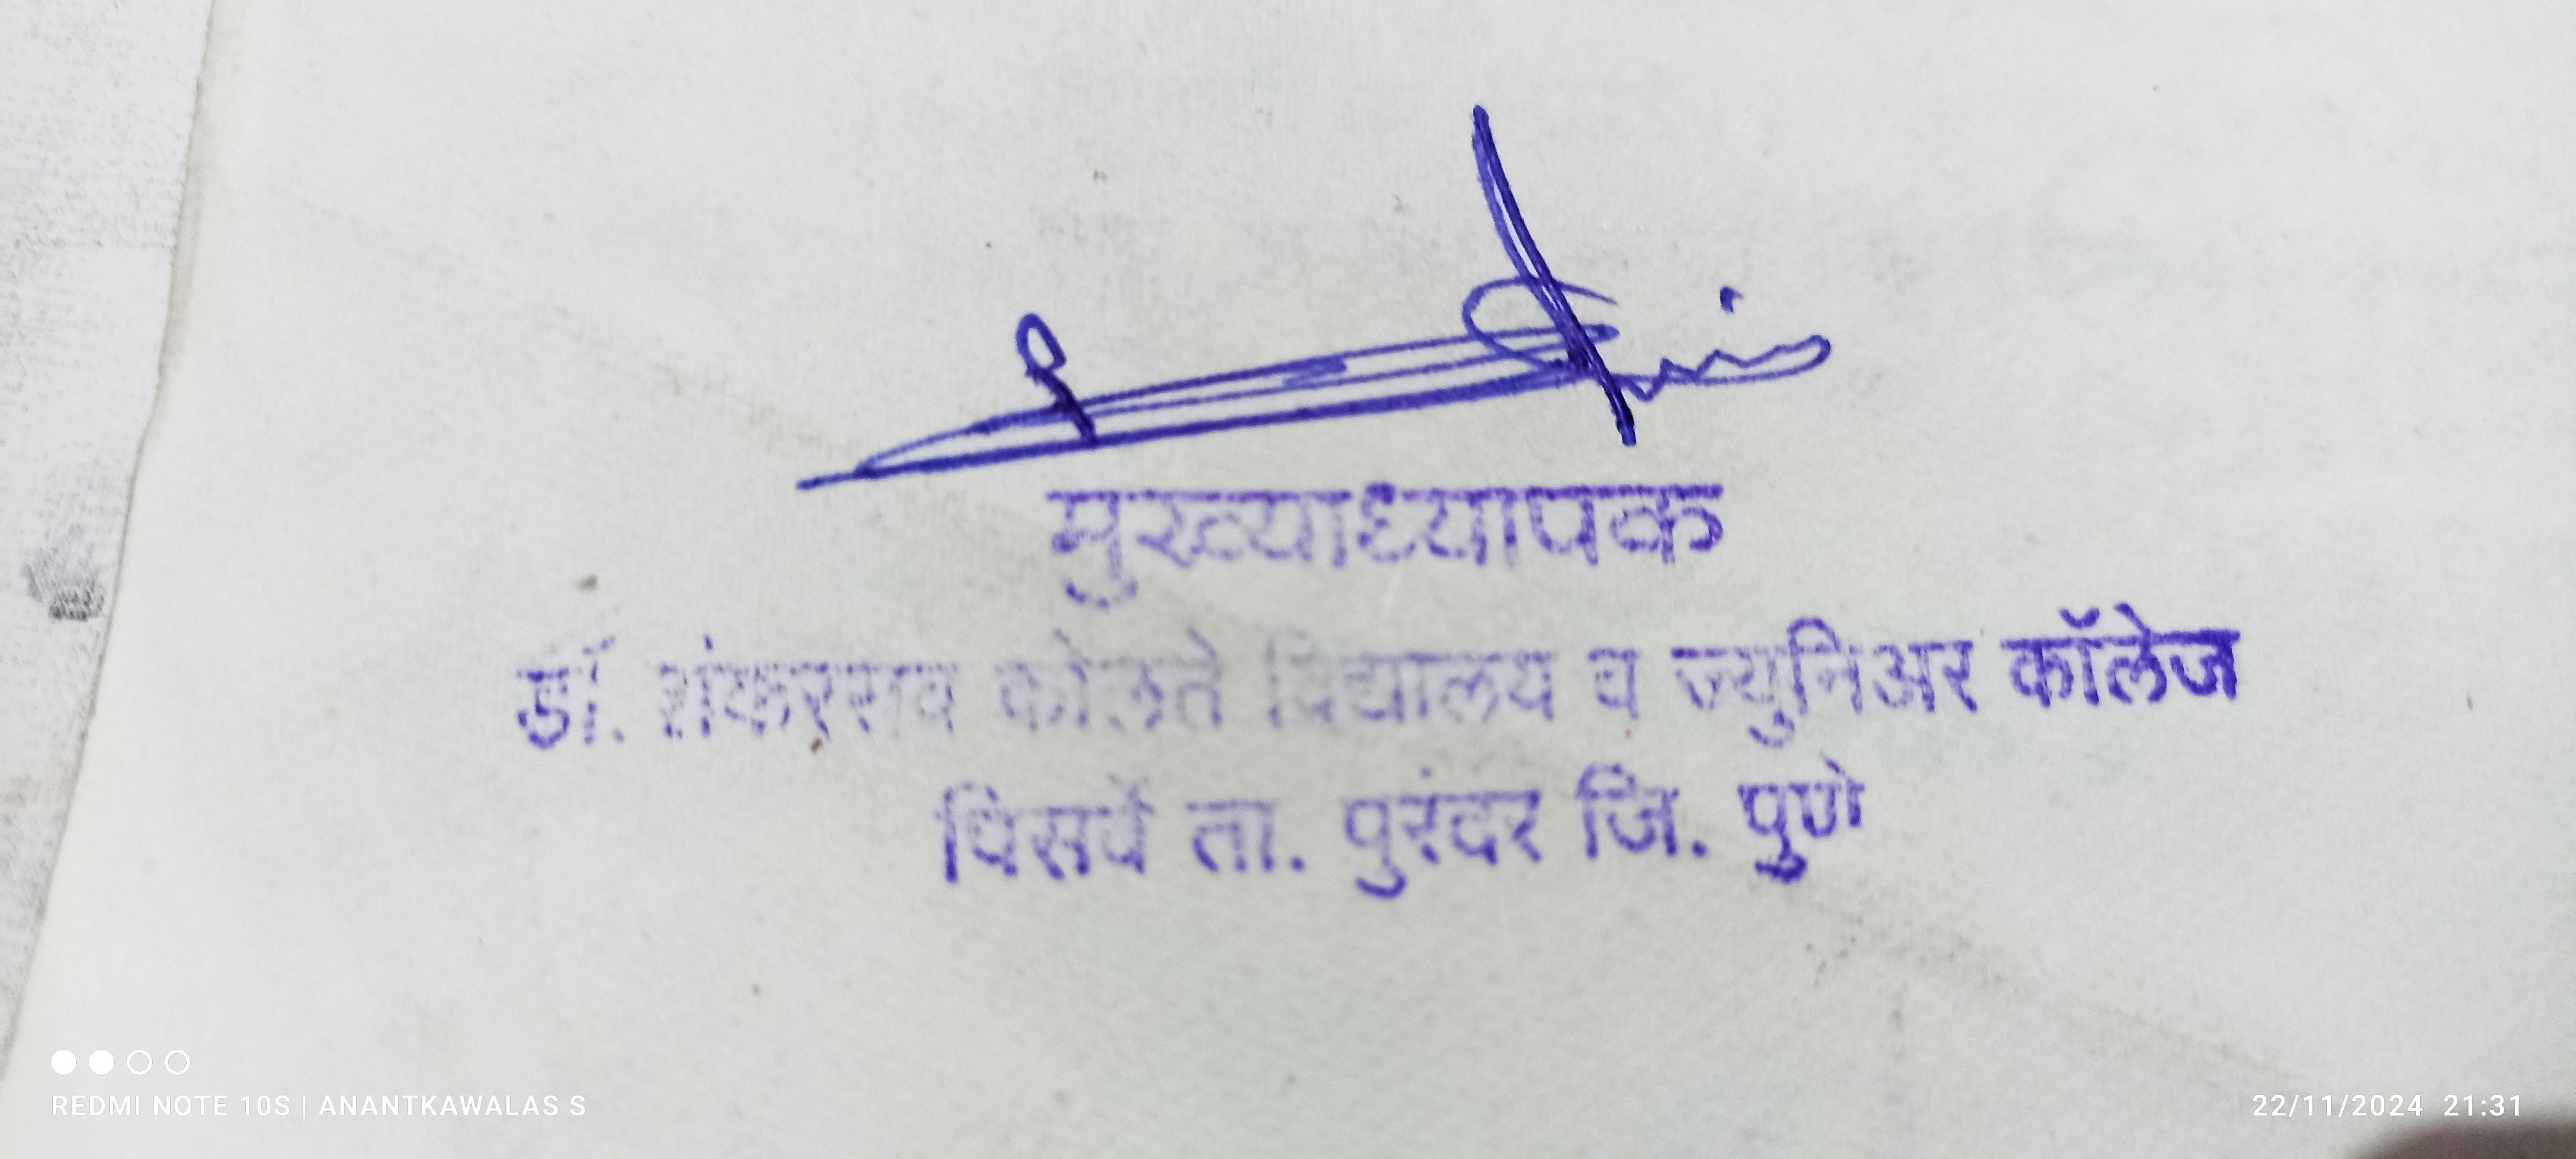 मुख्याध्यापक
डॉ. शंकरराव कोलते विद्यालय व ज्युनिअर कॉलेज
पिसर्वे ता. पुरंदर जि. पुणे
REDMI NOTE 10S | ANANTKAWALAS S
22/11/2024 21:31